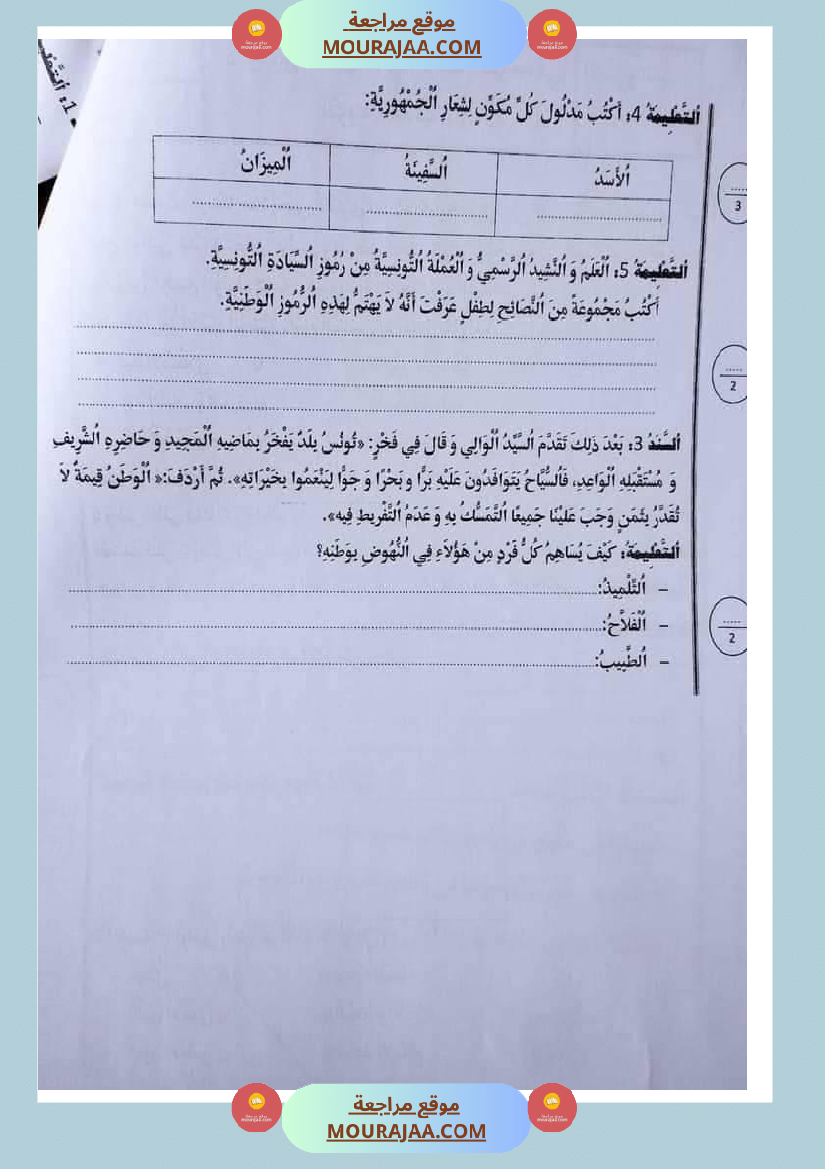 موقع مراجعة
MOURAJAA.COM
اَلتَّعْلِيمَةُ 4: أَكْتُبُ مَدْلُولَ كُلِّ مُكَوِّنٍ لِشِعَارِ اُلْجُمْهُورِيَّةِ:
اُلأَسَدُ	اُلسَّفِينَةُ	اُلْمِيزَانُ
..............................	..............................	..............................
.....
3
اَلتَّعْلِيمَةُ 5: اُلْعَلَمُ وَ اُلنَّشِيدُ اُلرَّسْمِيُّ وَ اُلْعُمْلَةُ اُلتُّونِسِيَّةُ مِنْ رُمُوزِ اُلسِّيَادَةِ اُلتُّونِسِيَّةِ.
أَكْتُبُ مَجْمُوعَةً مِنَ اُلنَّصَائِحِ لِطِفْلٍ عَرَفْتَ أَنَّهُ لاَ يَهْتَمُّ لِهَذِهِ اُلرُّمُوزِ اُلْوَطَنِيَّةِ.
.....
2
اَلسَّنَدُ 3: بَعْدَ ذَلِكَ تَقَدَّمَ اُلسَّيِّدُ اُلْوَالِي وَ قَالَ فِي فَخْرٍ: «تُونُسُ بَلَدٌ يَفْخَرُ بِمَاضِيهِ اُلْمَجِيدِ وَ حَاضِرِهِ اُلشَّرِيفِ
وَ مُسْتَقْبَلِهِ اُلْوَاعِدِ، فَاُلسُّيَّاحُ يَتَوَافَدُونَ عَلَيْهِ بَرًّا و بَحْرًا وَ جَوًّا لِيَنْعَمُوا بِخَيْرَاتِهِ». ثُمَّ أَرْدَفَ:« اُلْوَطَنُ قِيمَةٌ لاَ
تُقَدَّرُ بِثَمَنٍ وَجَبَ عَلَيْنَا جَمِيعًا اُلتَّمَسُّكُ بِهِ وَ عَدَمُ اُلتَّفْرِيطِ فِيه».
اَلتَّعْلِيمَةُ: كَيْفَ يُسَاهِمُ كُلُّ فَرْدٍ مِنْ هَؤُلاَءِ فِي اُلنُّهُوضِ بِوَطَنِهِ؟
– اُلتِّلْمِيذُ:..............................
– اُلْفَلاَّحُ:..............................
– اُلطَّبِيبُ:..............................
.....
2
موقع مراجعة
MOURAJAA.COM